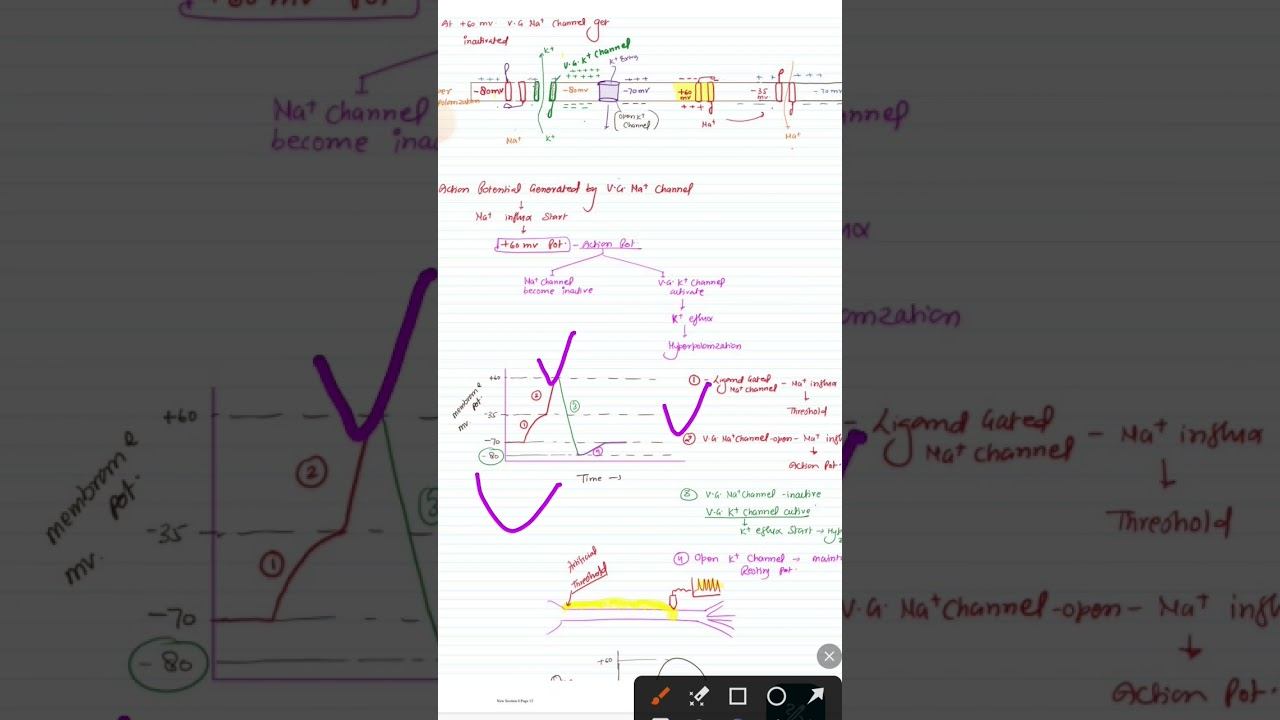 At +60 mv. V.G Na+ Channel get
inactivated
K+
V.G. K+ Channel
K+ Entry
+ + + + + + + + + + + + + + + + + + + + +
- 80mv -80mv -70mv +60 mv -35 mv -70 mv
Na+ K+ (Open K+ Channel) Na+ Na+
Action Potential Generated by V.G. Na+ Channel
↓
Na+ influx Start
↓
+60 mv Pot. - Action Pot.
Na+ Channel V.G. K+ Channel
become inactive activate
↓
K+ eflux
↓
Hyperpolarization
membrane pot. mv
+60
-35
-70
-80
① ② ③
Time →
① - Ligand Gated Na+ channel - Na+ influx
↓
Threshold
② V.G Na+ channel-open - Na+ infl
↓
Action Pot.
③ V.G. Na+ Channel - inactive
V.G. K+ channel active
↓
K+ eflux Start → Hy
④ Open K+ Channel → maint
Resting pot.
Artificial
Threshold
+60
New Section 8 Page 12
Na+ Channel
become ina
membrane pot. mv.
+60
-35
-70
-80
① ② ③
Ligand Gated Na+ channel - Na+ influx
↓
Threshold
V.G. Na+ Channel-open - Na+ infl
↓
Action Pot.